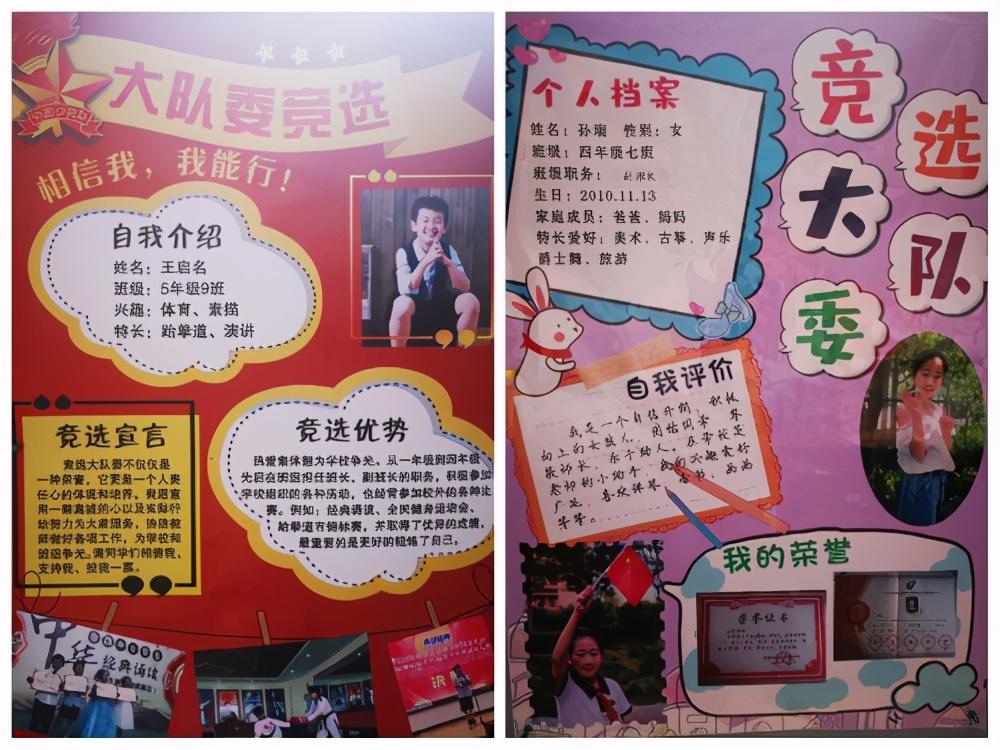 大队委竞选
相信我，我能行！
自我介绍
姓名：王启名
班级：5年级9班
兴趣：体育、素描
特长：跆拳道、演讲
竞选宣言
竞选大队委不仅仅是
一种荣誉，它更是一个人责
任心的体现和培养。我愿意
用一颗真诚的心以及实际行
做好各项工作，为学校和
班级争光。
支持我，投我一票。
竞选优势
热爱集体想为学校争光。从一年级到四年级
先后在班担任班长、副班长的职务，积极参加
学校组织的各种活动，也经常参加校外的各种比
赛。例如：经典诵读、全民健身运动会、
跆拳道市锦标赛，并取得了优异的成绩，
最重要的是更好的锻炼了自己。
中华经典诵读
个人档案
姓名：孙 性别：女
班级：四年级七班
班级职务：副班长
生日：2010.11.13
家庭成员：爸爸、妈妈
特长爱好：美术、古筝、声乐
爵士舞、旅游
竞选大队委
自我评价
我是一个自信开朗、积极
向上的女孩儿，团结同学、尊
敬师长、乐于助人，
老师的小助手，我的兴趣爱好
广泛，喜欢弹琴、看书、画画
等等。
我的荣誉